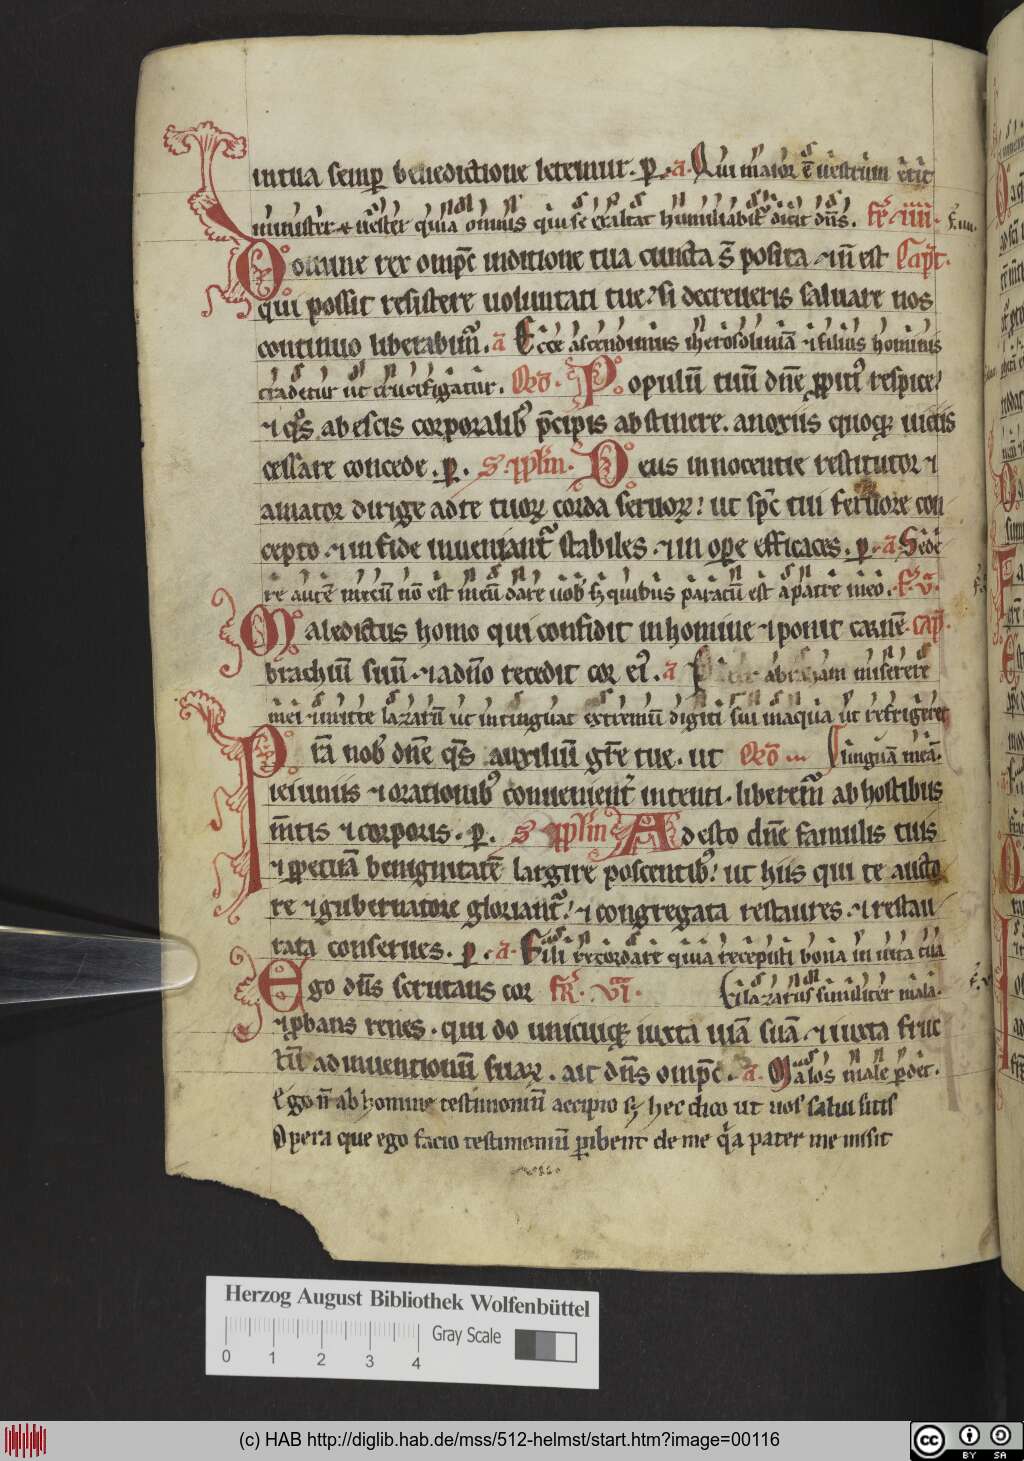 in tua semp̲ benedictione letemur. p̲. a. Qui maior ē uestrum erit
minister uester quia omnis qui se exaltat humiliabit̄ dicit dn̄s. fr̄. iiii.
Domine rex omp̄c in ditione tua cuncta s̄ posita ⁊ ñ est Capt̄.
qui possit resistere uoluntati tue? si decreueris saluare nos
continuo liberabim᷒. a Ecce ascendimus iherosolimā ⁊ filius hominis
tradetur ut crucifigatur. Orō. Populū tuū dn̄e ꝓpiti᷒ respice?
⁊ q̄s ab escis corporalib᷒ p̄cipis abstinere. a noxiis quoqꝫ uiciis
cessare concede. p̲. S. ꝓplm̄. Deus innocentie restitutor ⁊
amator dirige ad te tuoꝝ corda seruoꝝ? ut sp̄c tui feruore con
cepto ⁊ in fide inueniant᷒ stabiles ⁊ in oꝑe efficaces. p̲. a Sede
re autē mecū nō est meū dare uob s; quibus paratū est a patre meo. fr̄. v.
Maledictus homo qui confidit in homine ⁊ ponit carnē cap̄.
brachiū suū ⁊ a dn̄o recedit cor ei᷒. a Pater abraham miserere
mei ⁊ mitte lazarū ut intinguat extremū digiti sui in aqua ut refrigeret
Pr̄a nob dn̄e q̄s auxiliū gr̄e tue. ut Orō linguā meā.
ieiuniis ⁊ orationib᷒ conuenient̄ intenti. liberem᷒ ab hostibus
m̄tis ⁊ corporis. p̲. S ꝓplm̄ Adesto dn̄e famulis tuis
⁊ ꝑpetuā benignitatē largire poscentib᷒? ut hiis qui te aucto
re ⁊ gubernatore gloriant᷒? ⁊ congregata restaures. ⁊ restau
rata conserues. p̲. a. Fili recordare quia recepisti bona in uita tua
Ego dn̄s scrutans cor fr̄. vi. Et lazarus similiter mala.
⁊ ꝓbans renes. qui do unicuiqꝫ iuxta uiā suā ⁊ iuxta fruc
tū adinuentionū suaꝝ. ait dn̄s omp̄c. a. Malos male ꝑdet.
Ego ñ ab homine testimoniū accipio s; hec dico ut uos salui sitis
Opera que ego facio testimoniū ꝑibent de me q̄a pater me misit
Herzog August Bibliothek Wolfenbüttel
Gray Scale
0 1 2 3 4
(c) HAB http://diglib.hab.de/mss/512-helmst/start.htm?image=00116
cc BY SA